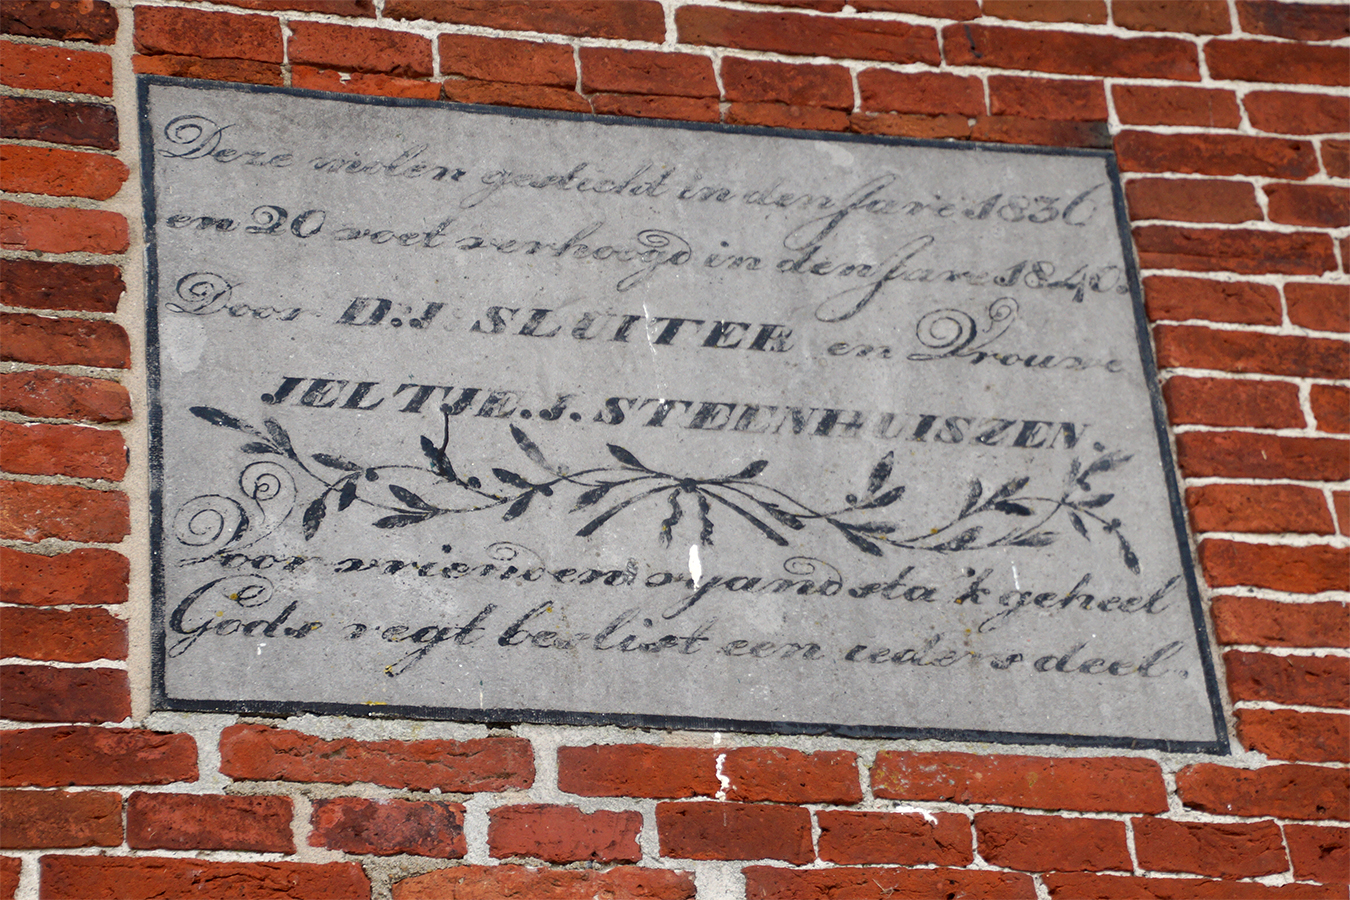 Deze molen gesticht in den Jare 1836
en 20 voet verhoogd in den Jare 1840.
Door D:J SLUITER en Vrouwe
JELTJE.J. STEENHUISZEN.
Voor vrienden vyand sta 'k geheel
Gods regt beslist een ieders deel.